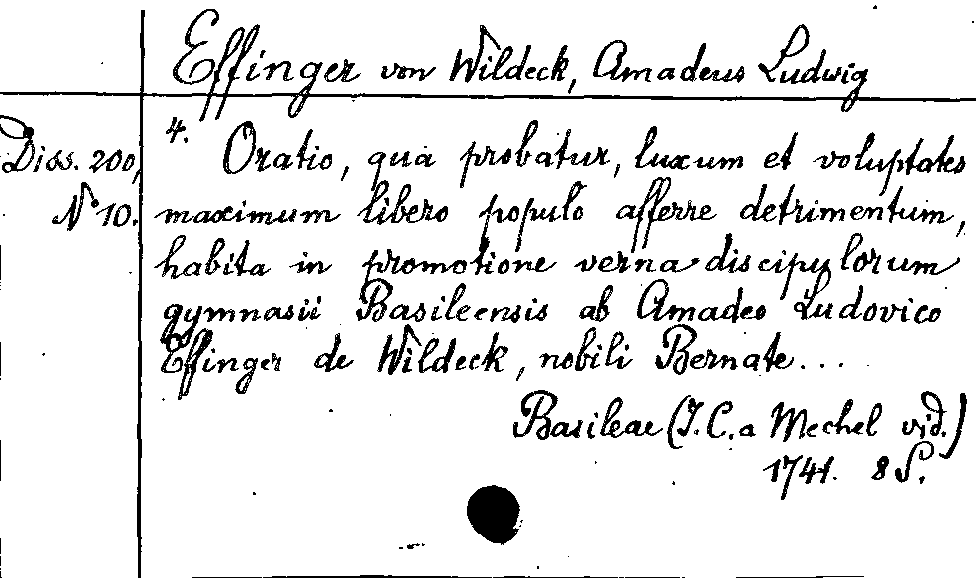 Effinger von Wildeck, Amadeus Ludwig
Diss. 200,
N° 10.
4. Oratio, qua probatur, luxum et voluptates
maximum libero populo afferre detrimentum,
habita in promotione verna discipulorum
gymnasii Basileensis ab Amadeo Ludovico
Effinger de Wildeck, nobili Bernate...
Basileae (J. C. a Mechel vid.)
1741. 8 S.